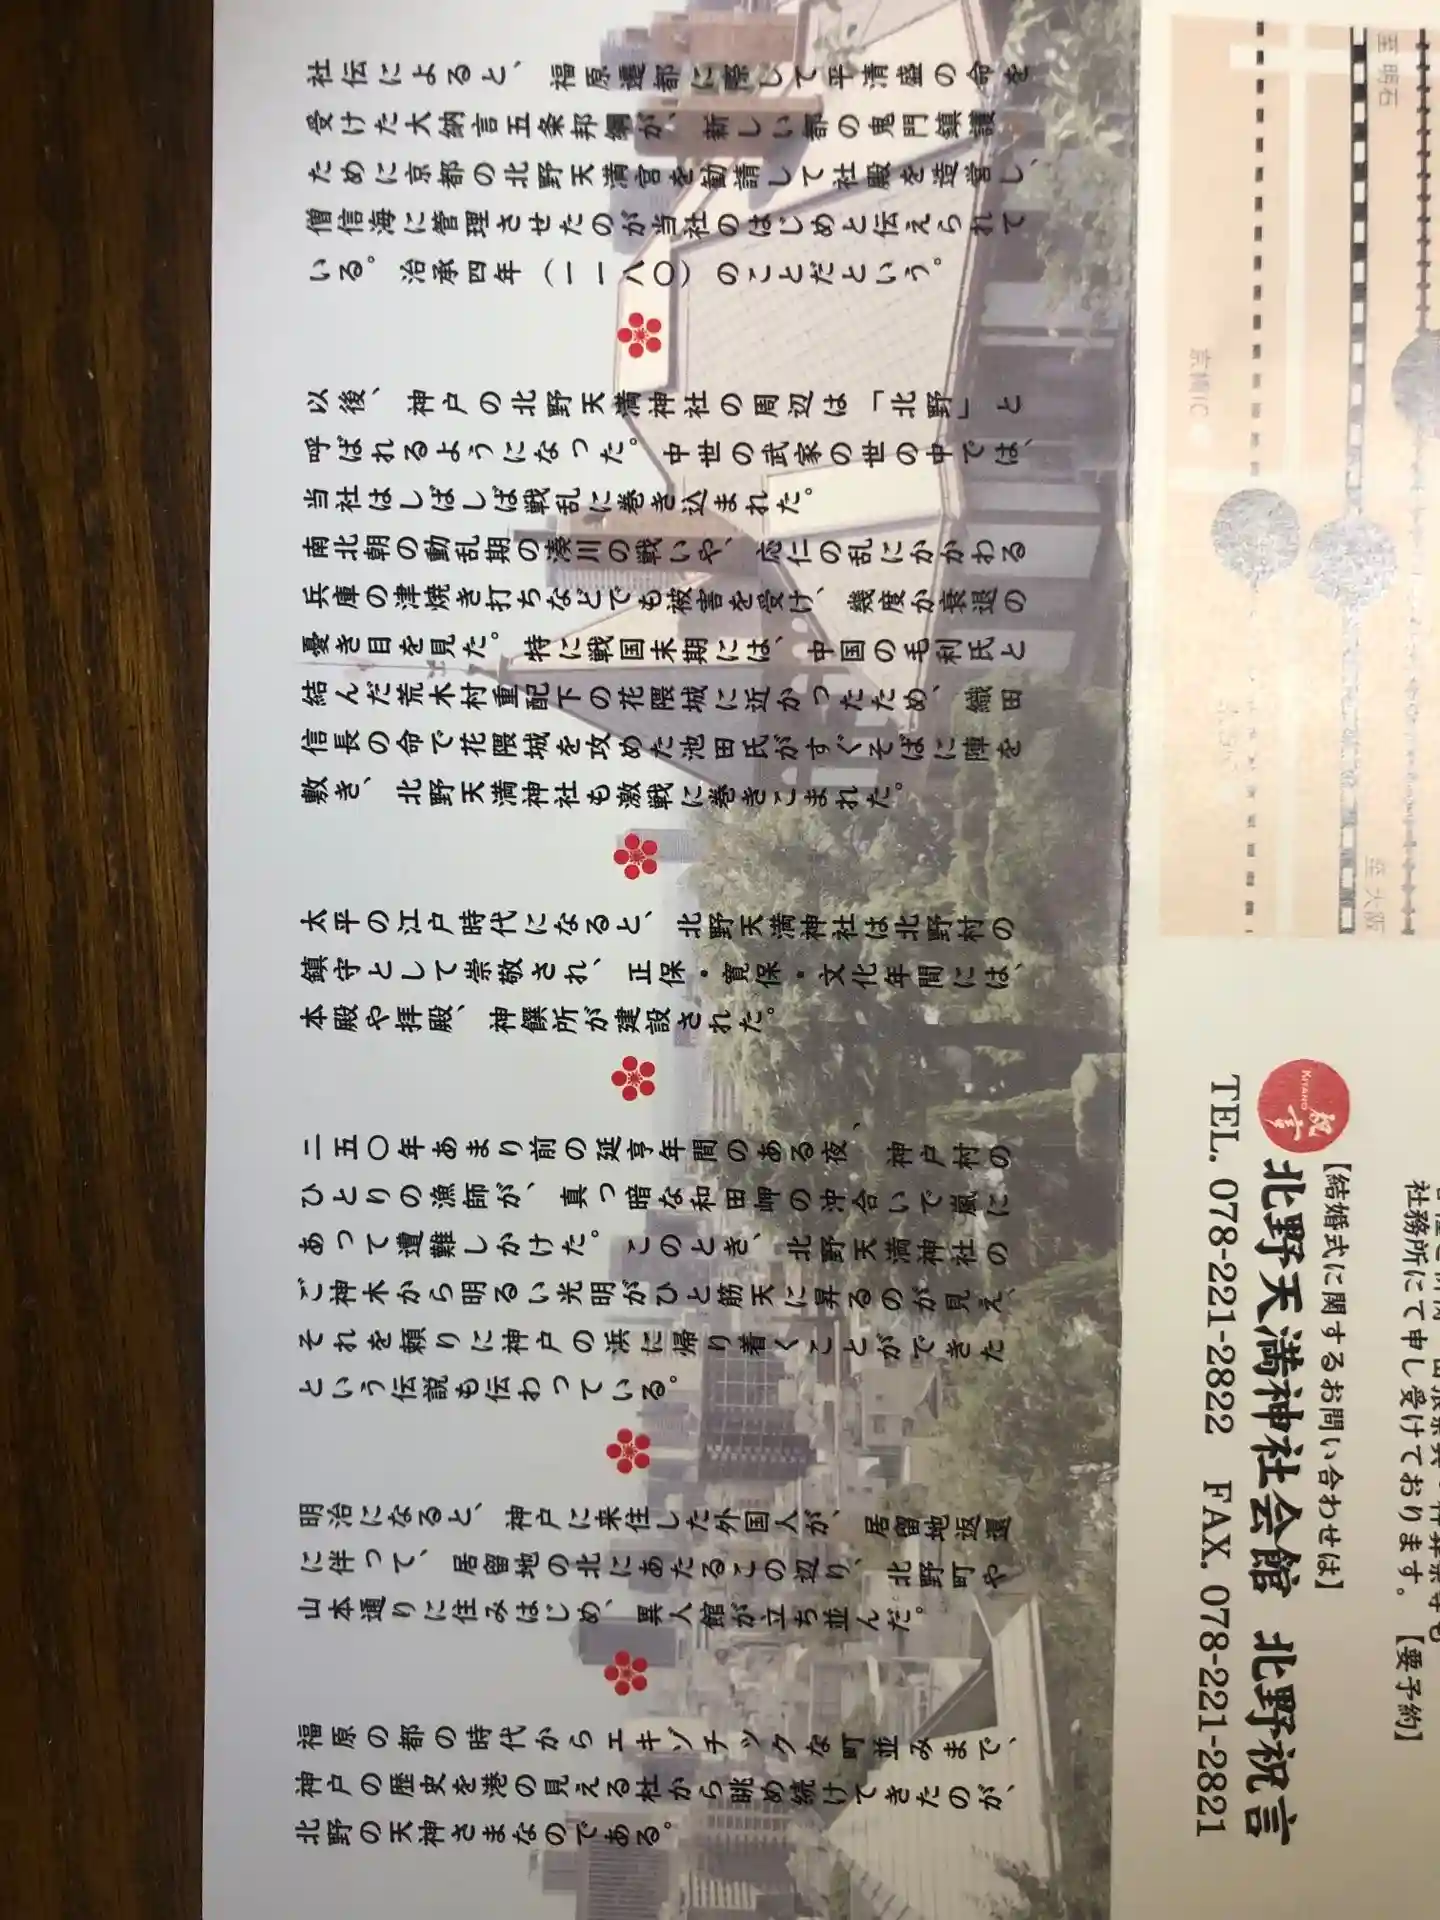 社伝によると、福原遷都に際して平清盛の命を
受けた大納言五条邦綱が、新しい都の鬼門鎮護
ために京都の北野天満宮を勧請して社殿を造営し、
僧信海に管理させたのが当社のはじめと伝えられて
いる。治承四年（一一八〇）のことだという。
以後、神戸の北野天満神社の周辺は「北野」と
呼ばれるようになった。中世の武家の世の中では、
当社はしばしば戦乱に巻き込まれた。
南北朝の動乱期の湊川の戦いや、応仁の乱にかかわる
兵庫の津焼き打ちなどでも被害を受け、幾度か衰退の
憂き目を見た。特に戦国末期には、中国の毛利氏と
結んだ荒木村重配下の花隈城に近かったため、織田
信長の命で花隈城を攻めた池田氏がすぐそばに陣を
敷き、北野天満神社も激戦に巻きこまれた。
太平の江戸時代になると、北野天満神社は北野村の
鎮守として崇敬され、正保・寛保・文化年間には、
本殿や拝殿、神饌所が建設された。
二五〇年あまり前の延享年間のある夜、神戸村の
ひとりの漁師が、真っ暗な和田岬の沖合いで嵐に
あって遭難しかけた。このとき、北野天満神社の
ご神木から明るい光明がひと筋天に昇るのが見え、
それを頼りに神戸の浜に帰り着くことができた
という伝説も伝わっている。
明治になると、神戸に来住した外国人が、居留地返還
に伴って、居留地の北にあたるこの辺り、北野町や
山本通りに住みはじめ、異人館が立ち並んだ。
福原の都の時代からエキゾチックな町並みまで、
神戸の歴史を港の見える杜から眺め続けてきたのが、
北野の天神さまなのである。
至明石
京橋IC
至大阪
社務所にて申し受けております。【要予約】
【結婚式に関するお問い合わせは】
KITANO
祝言
北野天満神社会館 北野祝言
TEL. 078-221-2822 FAX. 078-221-2821